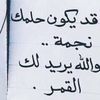 قد يكون حلمك
نجمة ..
والله يريد لك
القمر .